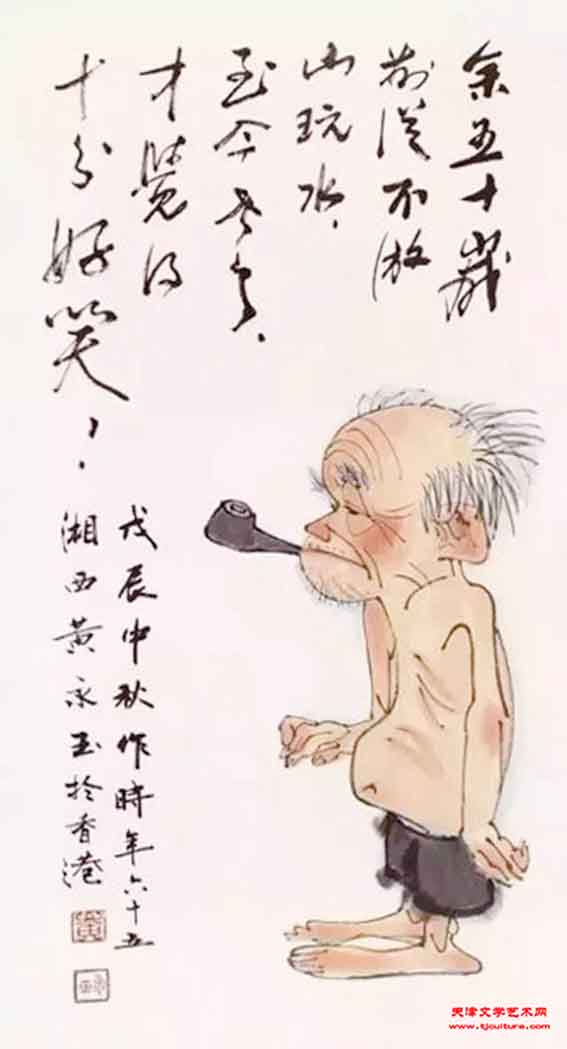 余五十歲
前從不游
山玩水，
至今老
才覺得
十分好笑！
戊辰中秋作時年六十五
湘西黃永玉於香港
黃
天津文学艺术网
www.tjculture.com